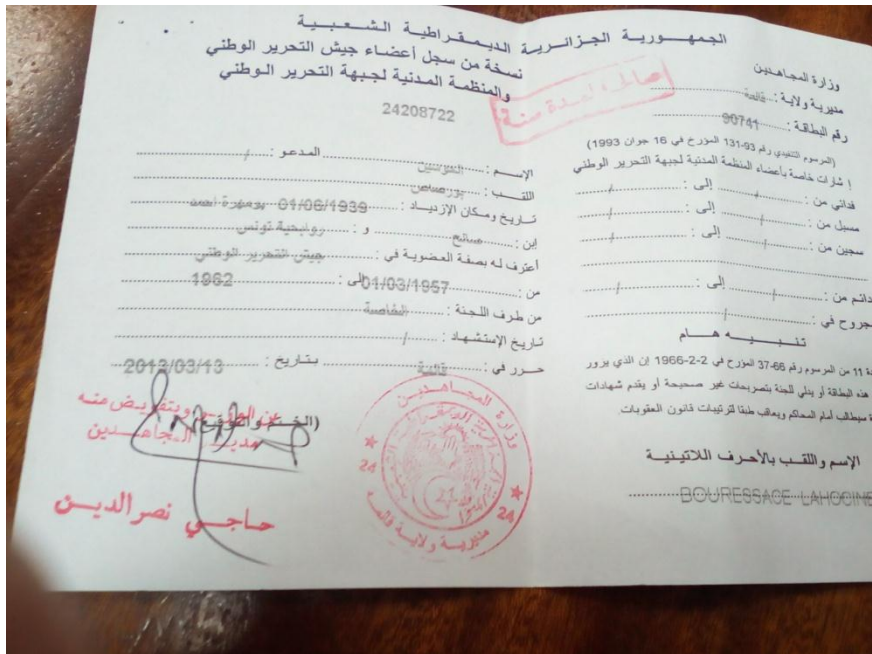 الجمهورية الجزائرية الديمقراطية الشعبية
نسخة من سجل أعضاء جيش التحرير الوطني
والمنظمة المدنية لجبهة التحرير الوطني
24208722
وزارة المجاهدين
مديرية ولاية : قالمة
رقم البطاقة : 90741
(المرسوم التنفيذي رقم 93-131 المؤرخ في 16 جوان 1993)
إشارات خاصة بأعضاء المنظمة المدنية لجبهة التحرير الوطني
فدائي من : / إلى : /
مسبل من : / إلى : /
سجين من : / إلى : /
دائم من : / إلى : /
مجروح في : /
تنبيه هام
11 من المرسوم رقم 66-37 المؤرخ في 2-2-1966 إن الذي يزور
هذه البطاقة أو يدلي للجنة بتصريحات غير صحيحة أو يقدم شهادات
سيطالب أمام المحاكم ويعاقب طبقا لترتيبات قانون العقوبات
الإسم واللقب بالأحرف اللاتينية
BOURESSACE LAHOCINE
صالحة لمدة سنة
الإسم : الحوسين المدعو : /
اللقب : بورصاص
تاريخ ومكان الإزدياد : 01/06/1939 بومهرة أحمد
إبن : صالح و : روابحية تونس
أعترف له بصفة العضوية في : جيش التحرير الوطني
من : 01/03/1957 إلى : 1962
من طرف اللجنة :
تاريخ الإستشهاد : /
حرر في : قالمة بتاريخ : 2013/03/13
(الختم والتوقيع)
عن الوزير وبتفويض منه
مدير المجاهدين
حاجي نصر الدين
وزارة المجاهدين
مديرية ولاية قالمة
24
24